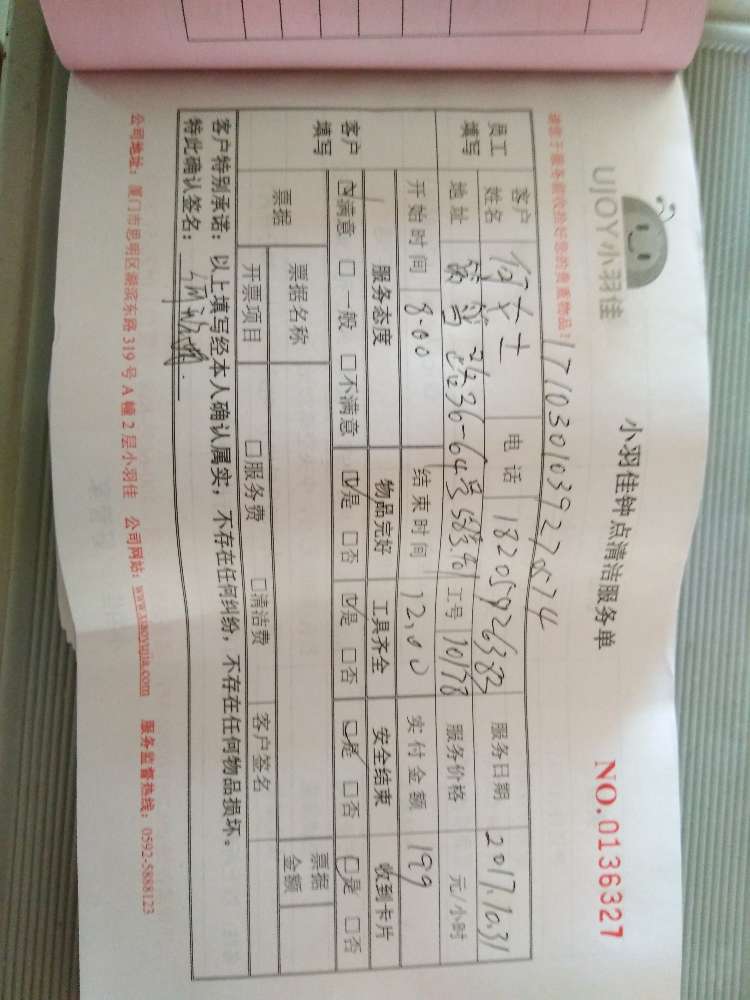 UJOY小羽佳
小羽佳钟点清洁服务单
NO.0136327
171030103927
员工填写
客户姓名 何女士 电话 18205926383 服务日期 2017.10.31
地址 36-64号 583.401 工号 10178 服务价格 元/小时
开始时间 8.00 结束时间 12.00 实付金额 199
客户填写
服务态度 物品完好 工具齐全 安全结束 收到卡片
☑满意 □一般 □不满意 ☑是 □否 ☑是 □否 ☑是 □否 ☑是 □否
票据 票据名称 票据金额
开票项目 □服务费 □清洁费 客户签名
客户特别承诺：以上填写经本人确认属实，不存在任何纠纷，不存在任何物品损坏。
特此确认签名：
公司地址：厦门市思明区湖滨东路319号A幢2层小羽佳 公司网站：www.xiaoyujia.com 服务监督热线：0592-5888123